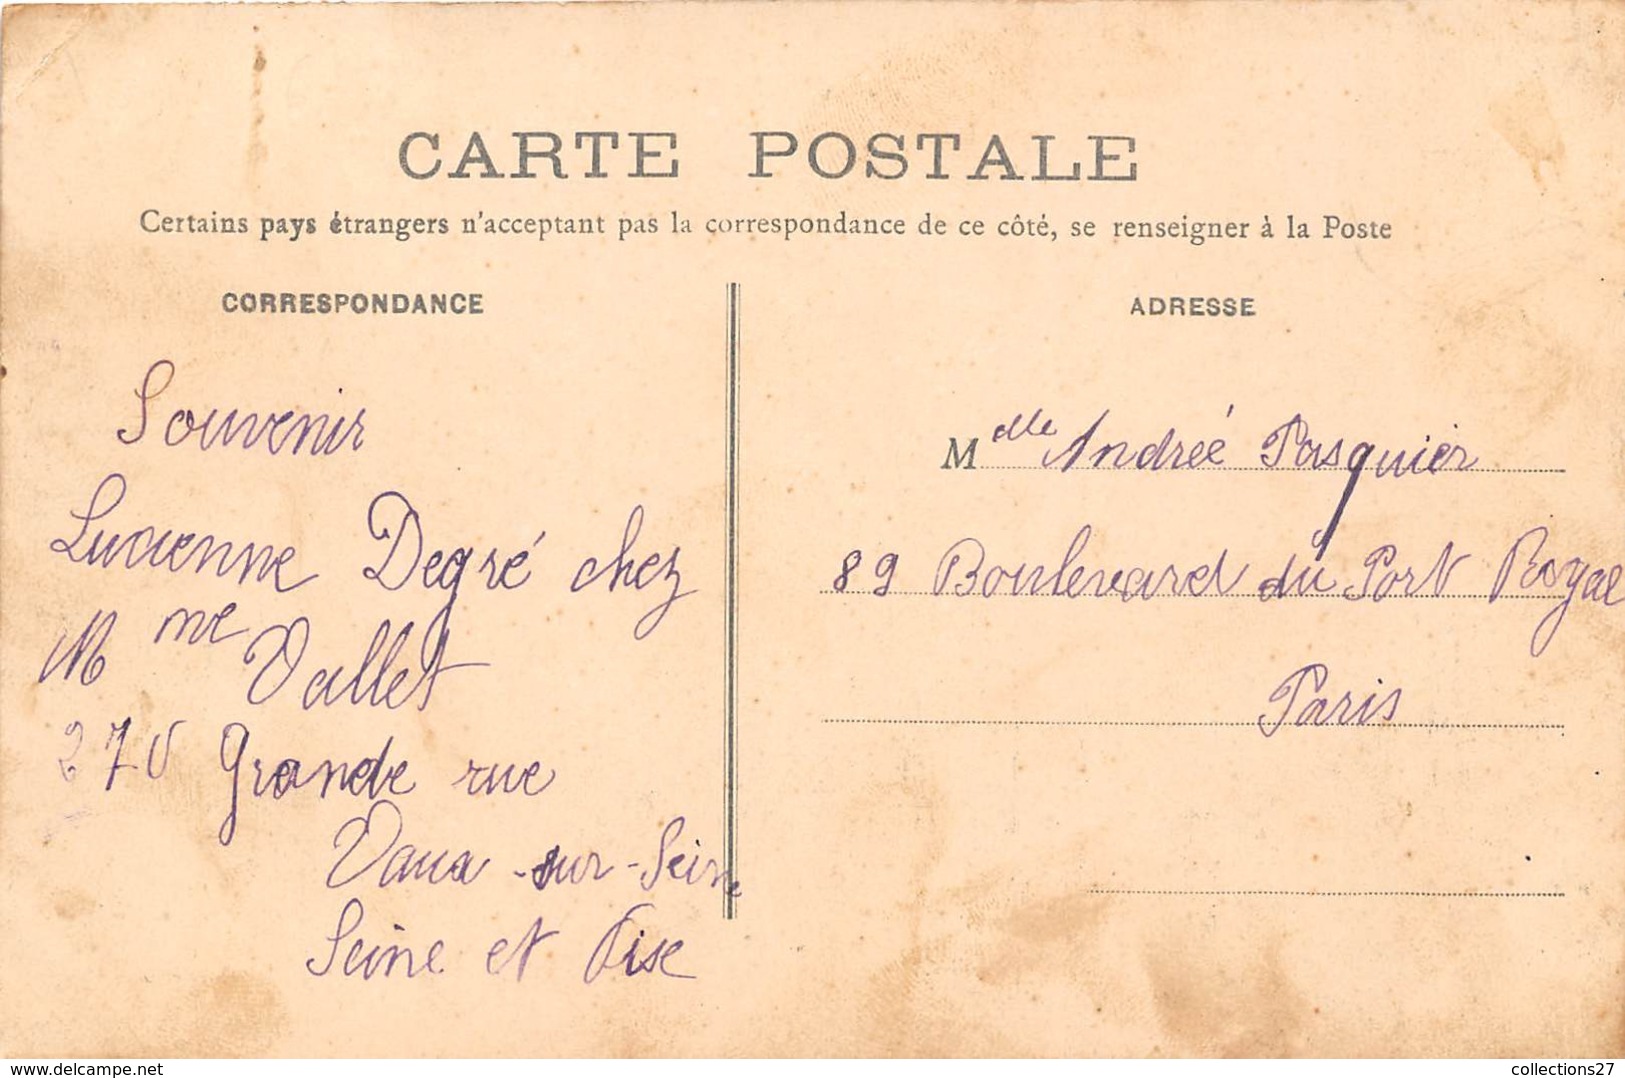 CARTE POSTALE
Certains pays étrangers n'acceptant pas la correspondance de ce côté, se renseigner à la Poste
CORRESPONDANCE
Souvenir
Lucienne Degré chez
Mme Vallet
270 Grande rue
Vaux-sur-Seine
Seine et Oise
ADRESSE
Mlle Andrée Pasquier
89 Boulevard du Port Royal
Paris
delcampe.net
collections27